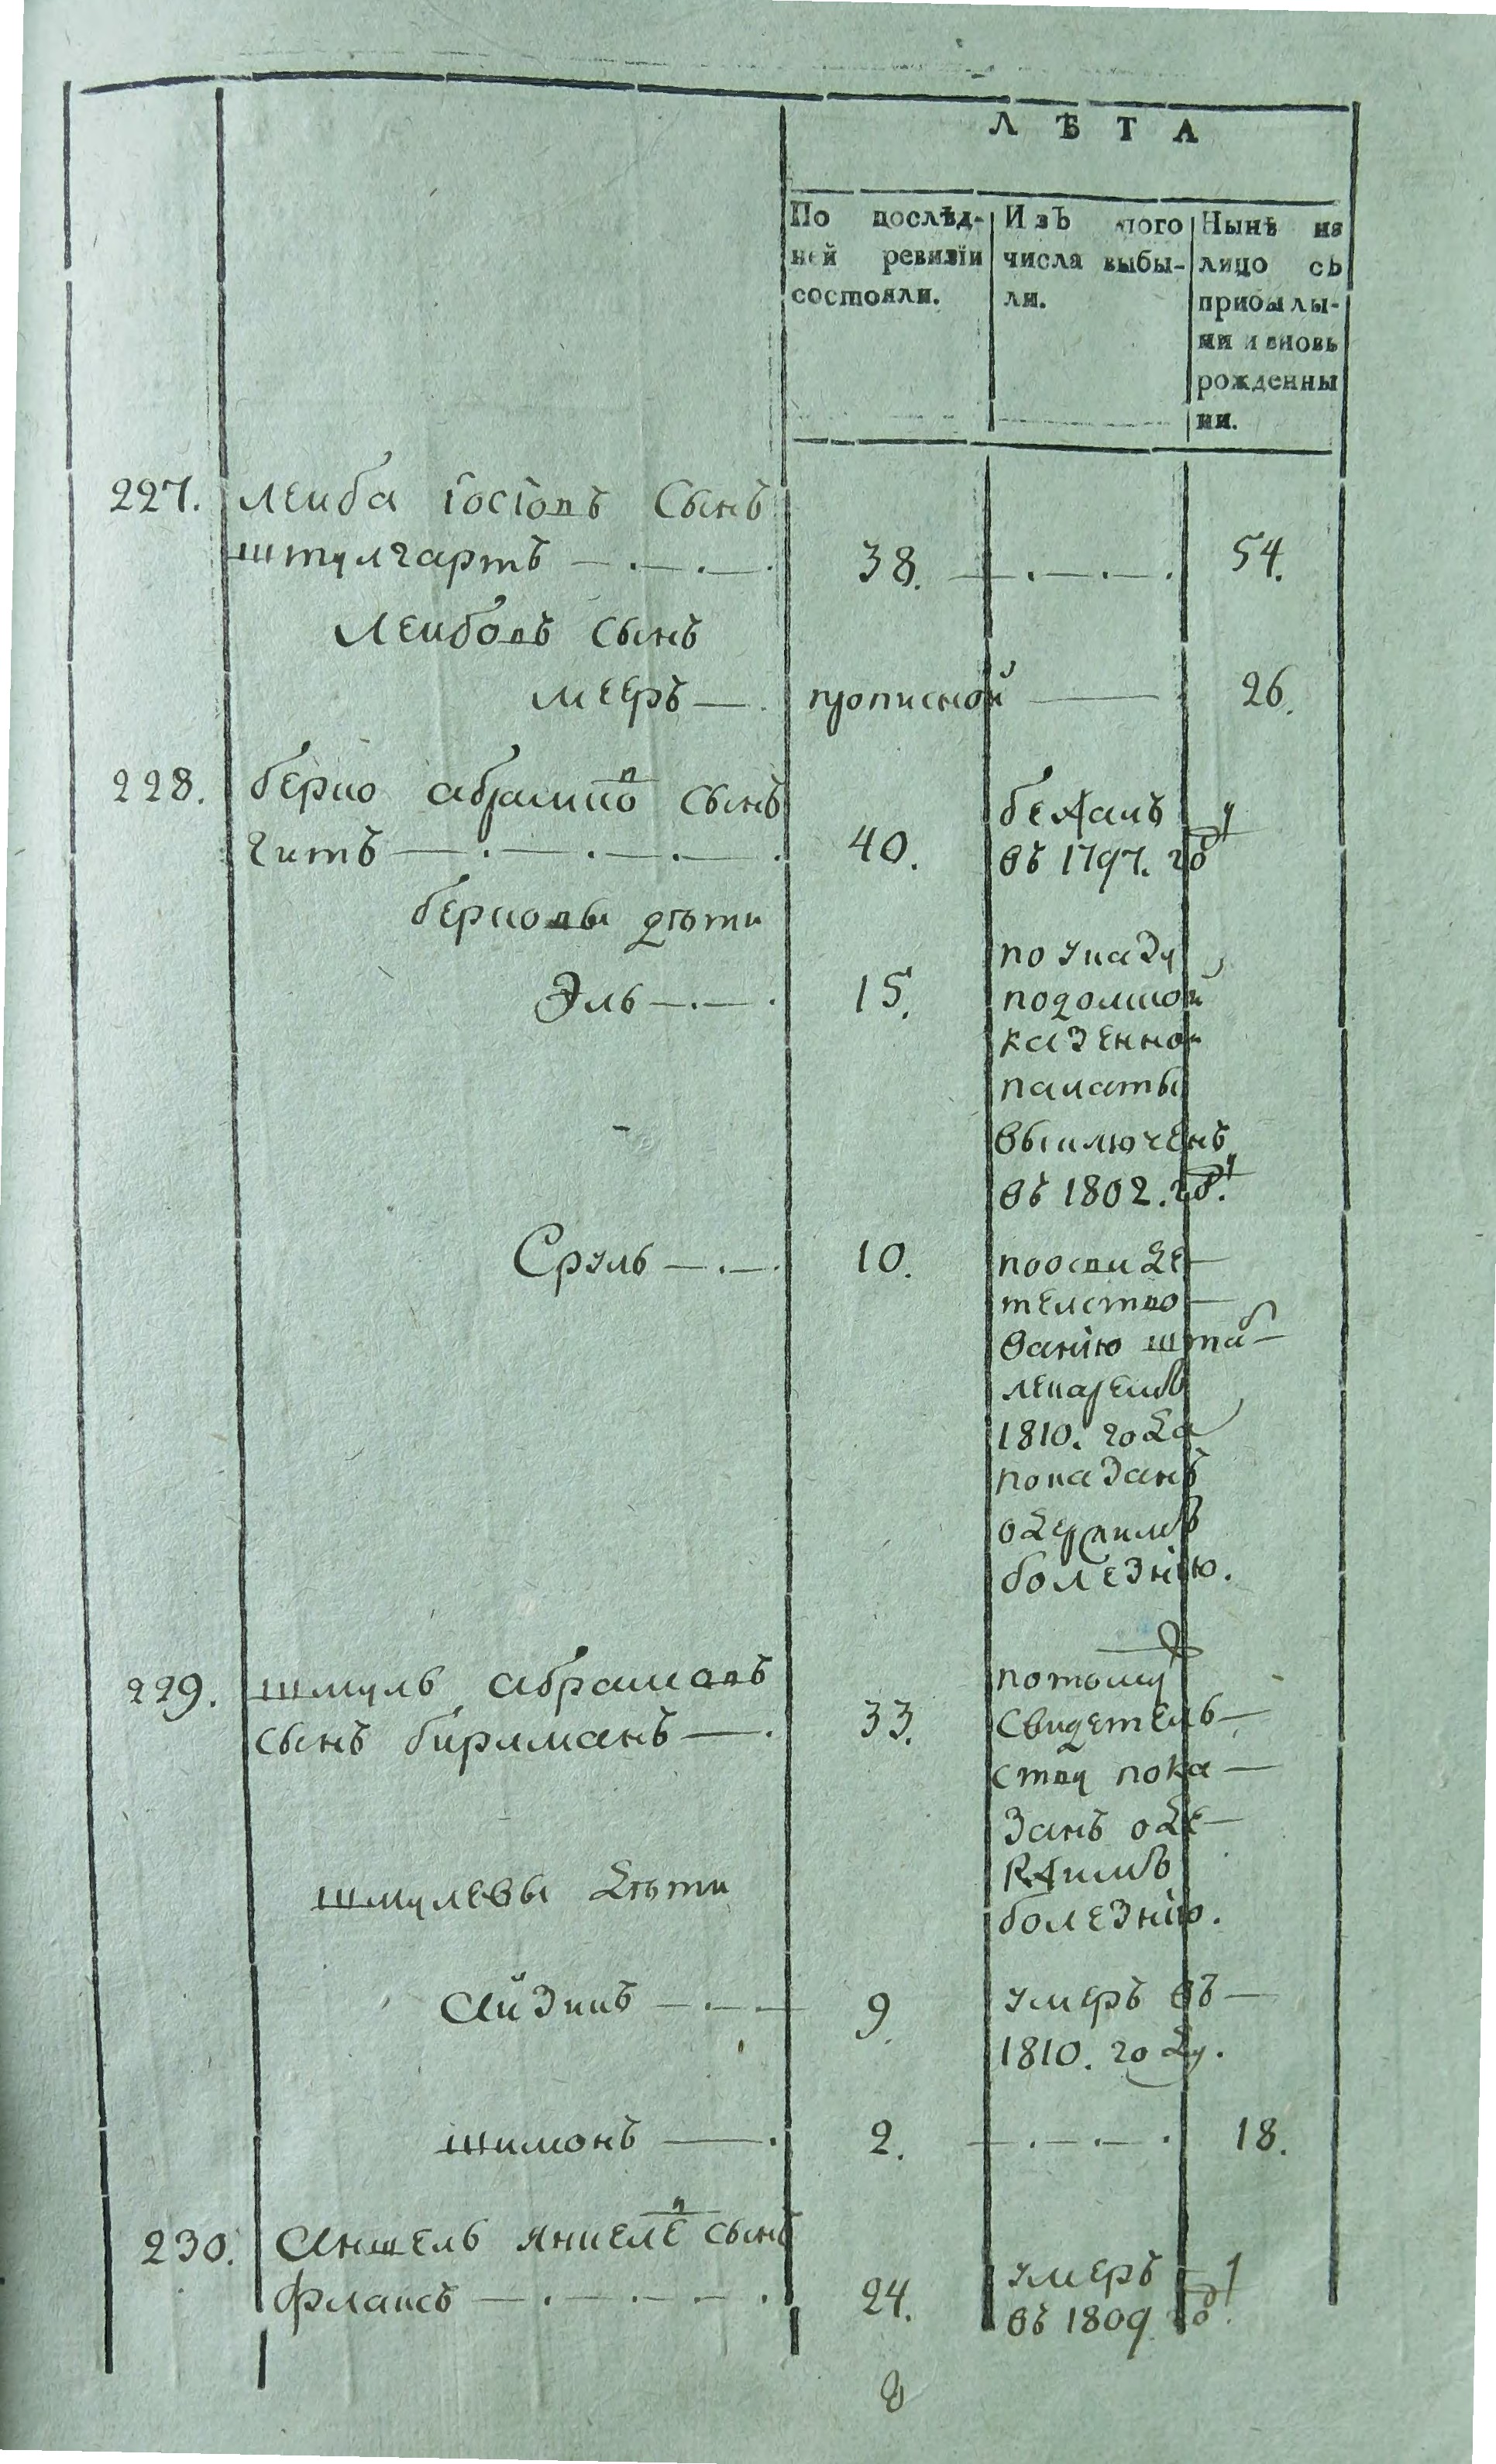 ЛѢТА
По послѣд-
ней ревизіи
состояли.
Изъ того
числа выбы-
ли.
Нынѣ на
лицо съ
прибылы-
ми и вновь
рожденны
ми.
227. Леиба Іосіовъ Сынъ
штулгартъ 38. 54.
Леибовъ сынъ
мееръ прописной 26.
228. берко абрамко в сынъ бежалъ
гитъ 40. въ 1797. году
берковы дѣти
по указу
Эль 15. подолской
казенной
палаты
выключенъ
въ 1802. году.
Сруль 10. по освиде
телство
ванію штаб
лекаремъ
1810. года
показанъ
одержимъ
болезнію.
229. шмуль абрамовъ по тому
сынъ бирлманъ 33. свидетель
ству пока
занъ оде
ржимъ
шмулевы дѣти болезнію.
Айзикъ 9. умеръ въ
1810. году.
шимонъ 2. 18.
230. Аншель янкелев сынъ умеръ
флаксъ 24. въ 1809 году.
8